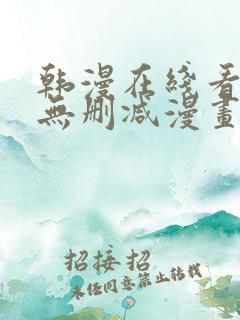 韩漫在线看
無删减漫畫
招接招
未经同意禁止转载